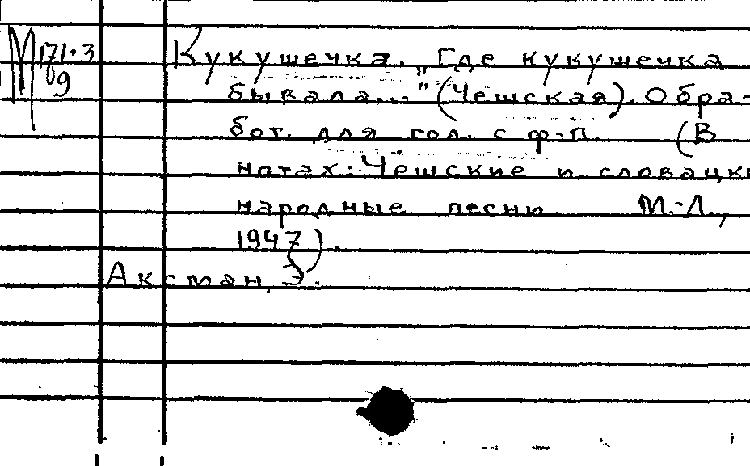 М 171-3 Кукушечка. "Где кукушечка
9 бывала..." (Чешская). Обра-
бот. для гол. с ф-п. (В
нотах: Чешские и словацки
народные песни М.-Л.,
1947).
Аксман, Э.